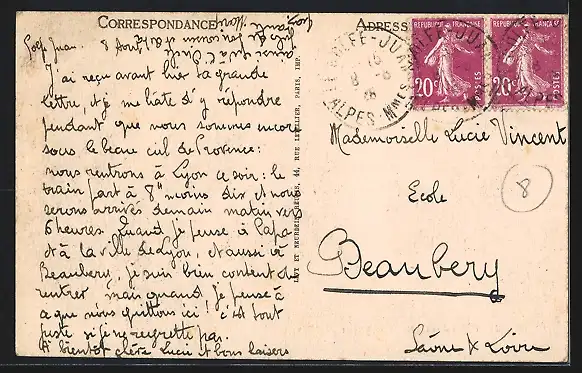 CORRESPONDANCE
Golfe Juan. 8 Août
J'ai reçu avant hier ta grande
lettre, et je me hâte d'y répondre
pendant que nous sommes encore
sous le beau ciel de Provence:
nous rentrons à Lyon ce soir: le
train part à 8h moins dix et nous
serons arrivés demain matin vers
6 heures. Quand je pense à Papa
et à la ville de Lyon, et aussi à
Beaubery, je suis bien content de
rentrer mais quand je pense à
a que nous quittons ici! c'est tout
juste si je ne regrette pas.
A bientôt chère Lucie et bons baisers
LEVY ET NEURDEIN RÉUNIS, 44, RUE LETELLIER, PARIS, IMP.
ADRESSE
RÉPUBLIQUE FRANÇAISE
20c
POSTES
RÉPUBLIQUE FRANÇAISE
20c
POSTES
LE GOLFE-JUAN
ALPES Mmes
Mademoiselle Lucie Vincent
Ecole
8
Beaubery
Saône & Loire